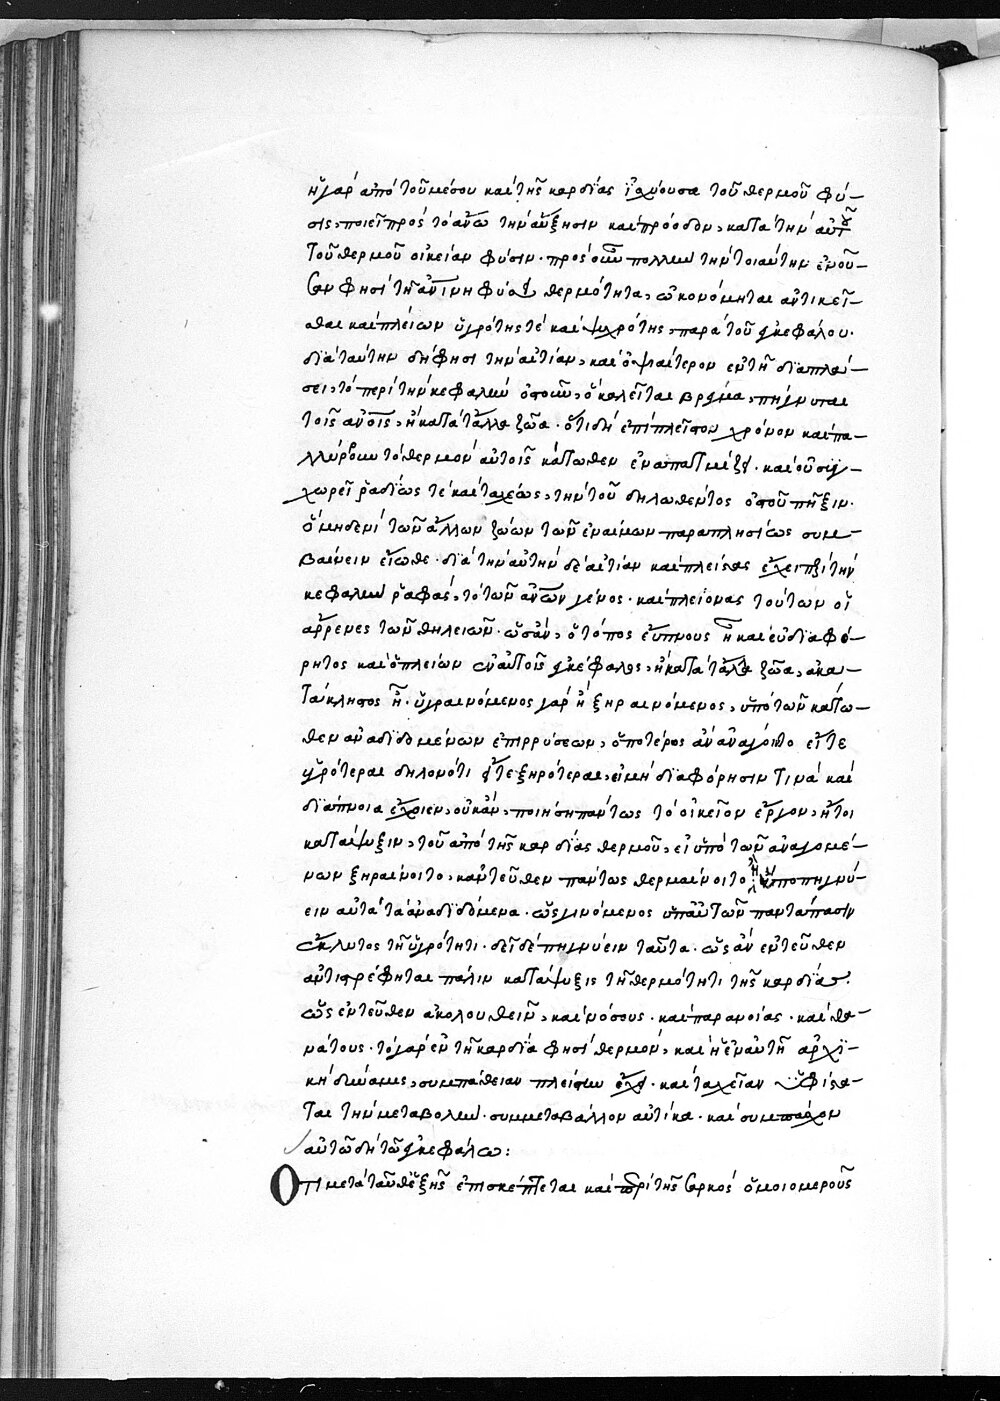 ἡ γὰρ ἀπὸ τοῦ μέσου καὶ τῆς καρδίας ἰσχύουσα τοῦ θερμοῦ φύ-
σις, ποιεῖ πρὸς τὸ ἄνω τὴν αὔξησιν καὶ πρόοδον, κατὰ τὴν αὐτοῦ
τοῦ θερμοῦ οἰκείαν φύσιν. πρὸς οὖν πολλὴν τὴν τοιαύτην ἐνοῦ-
σαν φησὶ τῇ ἀνίνῃ φύσει θερμότητα, ὠκονόμηται ἀντικεῖ-
σθαι καὶ πλείων ὑγρότης τὲ καὶ ψυχρότης, παρὰ τοῦ ἐγκεφάλου.
διὰ ταύτην δή φησι τὴν αἰτίαν, καὶ ὀψιαίτερον ἐν τῇ διαπλά-
σει, τὸ περὶ τὴν κεφαλὴν ὀστοῦν, ὃ καλεῖται βρέγμα, πήγνυται
τοῖς ἀνοις, ἢ κατὰ τἄλλα ζῶα. ὅτι δὴ ἐπιπλεῖστον χρόνον καὶ πα-
λλίρρουν τὸ θερμὸν αὐτοῖς κάτωθεν ἐναπατμίζει. καὶ οὐ συγ-
χωρεῖ ῥαδίως τὲ καὶ ταχέως, τὴν τοῦ δηλωθέντος ὀστοῦ πῆξιν.
ὃ μηδενὶ τῶν ἄλλων ζώων τῶν ἐναίμων παραπλησίως συμ-
βαίνειν εἴωθε. διὰ τὴν αὐτὴν δὲ αἰτίαν καὶ πλείστας ἔχει περὶ τὴν
κεφαλὴν ῥαφὰς, τὸ τῶν ἀνων γένος. καὶ πλείονας τούτων οἱ
ἄρρενες τῶν θηλειῶν. ὡς ἂν, ὁ τόπος εὔπνους ᾖ καὶ εὐδιαφό-
ρητος καὶ ὁ πλείων ὢν αὐτοῖς ἐγκέφαλος, ἢ κατὰ τἄλλα ζῶα, ἀκα-
τάκλυστος ᾖ. ὑγραινόμενος γὰρ ἢ ξηραινόμενος, ὑπὸ τῶν κάτω-
θεν ἀναδιδομένων ἐπιρρύσεων, ὁποτέρως ἂν ἀνάγοιντο εἴτε
ὑγρότεραι δηλονότι εἴτε ξηρότεραι, εἰ μὴ διαφόρησιν τινὰ καὶ
διάπνοια ἔχοιεν, οὐκ ἂν, ποιήσῃ πάντως τὸ οἰκεῖον ἔργον, ἤτοι
κατάψυξιν, τοῦ ἀπὸ τῆς καρδίας θερμοῦ, εἰ ὑπὸ τῶν ἀναγομέ-
νων ξηραίνοιτο, κἀντεῦθεν πάντως θερμαίνοιτο ἢ ὑποπηγνύ-
ειν αὐτὰ τὰ ἀναδιδόμενα. ὡς γινόμενος ὑπ' αὐτῶν παντάπασιν
ἔκλυτος τῇ ὑγρότητι. δεῖ δὲ πηγνύειν ταῦτα. ὡς ἂν ἐντεῦθεν
ἀντιστρέφηται πάλιν κατάψυξις τῇ θερμότητι τῆς καρδίας.
ὡς ἐντεῦθεν ἀκολουθεῖν, καὶ νόσους. καὶ παρανοίας. καὶ θα-
νάτους. τὸ γὰρ ἐν τῇ καρδία φησὶ θερμὸν, καὶ ἡ ἐν αὐτῇ ἀρχι-
κὴ δύναμις, συμπάθειαν πλείστην ἔχει. καὶ ταχεῖαν ὑφίστα-
ται τὴν μεταβολὴν. συμμεταβάλλον αὐτίκα. καὶ συμπάσχον
αὐτῶ δὴ τῶ ἐγκεφάλω:
Ὅτι μετὰ ταῦθ' ἑξῆς ἐπισκέπτεται καὶ περὶ τῆς σαρκὸς ὁμοιομεροῦς